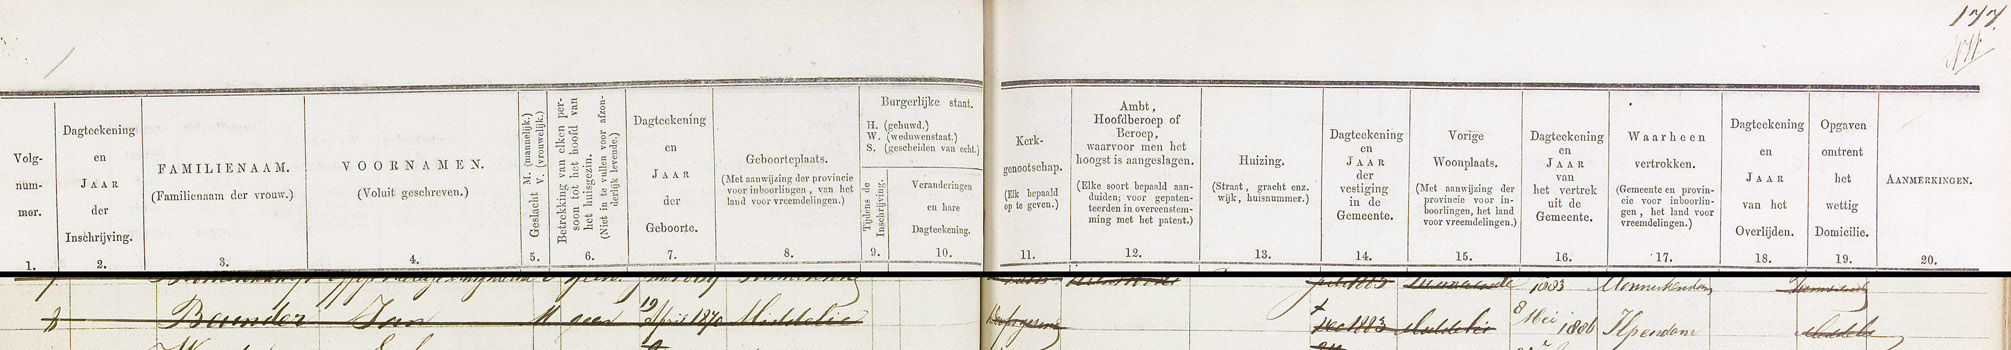 177
Volg-
num-
mer.
1.
Dagteekening
en
JAAR
der
Inschrijving.
2.
FAMILIENAAM.
(Familienaam der vrouw.)
3.
VOORNAMEN.
(Voluit geschreven.)
4.
Geslacht M. (mannelijk.)
V. (vrouwelijk.)
5.
Betrekking van elken per-
soon tot het hoofd van
het huisgezin.
(Niet in te vullen voor afzon-
derlijk levende.)
6.
Dagteekening
en
JAAR
der
Geboorte.
7.
Geboorteplaats.
(Met aanwijzing der provincie
voor inboorlingen, van het
land voor vreemdelingen.)
8.
Burgerlijke staat.
H. (gehuwd.)
W. (weduwenstaat.)
S. (gescheiden van echt.)
Tijdens de
Inschrijving.
9.
Veranderingen
en hare
Dagteekening.
10.
Kerk-
genootschap.
(Elk bepaald
op te geven.)
11.
Ambt,
Hoofdberoep of
Beroep,
waarvoor men het
hoogst is aangeslagen.
(Elke soort bepaald aan-
duiden; voor gepaten-
teerden in overeenstem-
ming met het patent.)
12.
Huizing.
(Straat, gracht enz.
wijk, huisnummer.)
13.
Dagteekening
en
JAAR
der
vestiging
in de
Gemeente.
14.
Vorige
Woonplaats.
(Met aanwijzing der
provincie voor in-
boorlingen, het land
voor vreemdelingen.)
15.
Dagteekening
en
JAAR
van
het vertrek
uit de
Gemeente.
16.
Waarheen
vertrokken.
(Gemeente en provin-
cie voor inboorlin-
gen, het land voor
vreemdelingen.)
17.
Dagteekening
en
JAAR
van het
Overlijden.
18.
Opgaven
omtrent
het
wettig
Domicilie.
19.
AANMERKINGEN.
20.
1883 Monnickendam
8 Baender Jan M geen 19 April 1870 Middelie Doopsgezind Dec 1883 Middelie 8 Mei 1886 Ilpendam Middelie